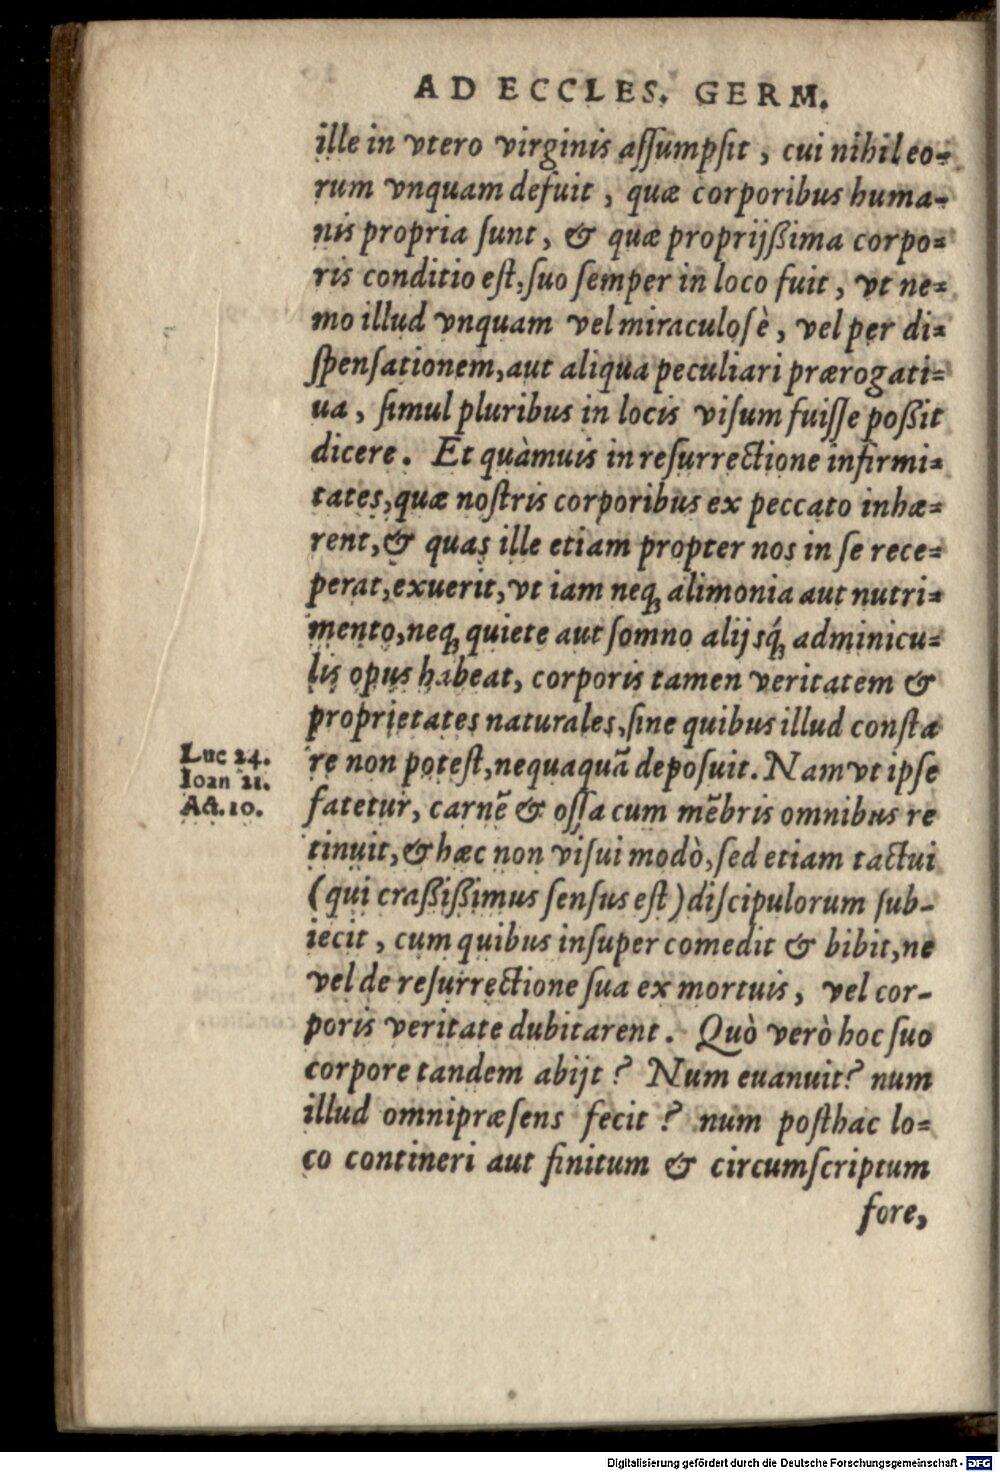 AD ECCLES. GERM.
ille in vtero virginis aſſumpſit, cui nihil eo-
rum vnquam defuit, quæ corporibus huma-
nis propria ſunt, & quæ proprijßima corpo-
ris conditio eſt, ſuo ſemper in loco fuit, vt ne-
mo illud vnquam vel miraculoſè, vel per di-
ſpenſationem, aut aliqua peculiari prærogati-
ua, ſimul pluribus in locis viſum fuiſſe poßit
dicere. Et quàmuis in reſurrectione infirmi-
tates, quæ noſtris corporibus ex peccato inhæ-
rent, & quas ille etiam propter nos in ſe rece-
perat, exuerit, vt iam neq́; alimonia aut nutri-
mento, neq́; quiete aut ſomno alijsq́; adminicu-
lis opus habeat, corporis tamen veritatem &
proprietates naturales, ſine quibus illud conſta
re non poteſt, nequaquã depoſuit. Nam vt ipſe
fatetur, carnẽ & oſſa cum mẽbris omnibus re
tinuit, & hæc non viſui modò, ſed etiam tactui
(qui craßißimus ſenſus eſt) diſcipulorum ſub-
iecit, cum quibus inſuper comedit & bibit, ne
vel de reſurrectione ſua ex mortuis, vel cor-
poris veritate dubitarent. Quò verò hoc ſuo
corpore tandem abijt? Num euanuit? num
illud omnipræſens fecit? num poſthac lo-
co contineri aut finitum & circumſcriptum
fore,
Luc 24.
Ioan 21.
Act. 10.
Digitalisierung gefördert durch die Deutsche Forschungsgemeinschaft - DFG